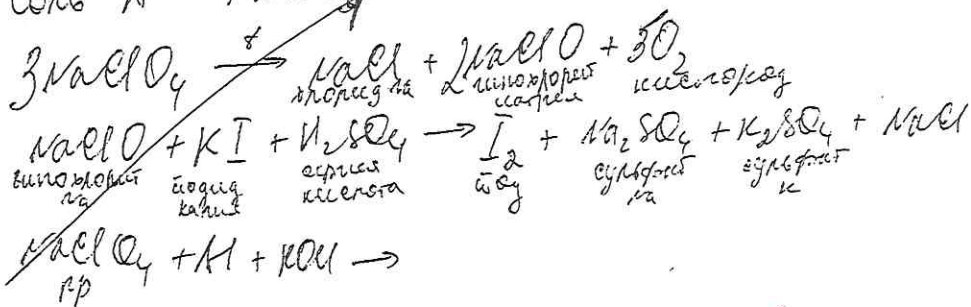 Соль
3NaClO₄ →ᵗ NaCl + 2NaClO + 5O₂
хлорид na гипохлорит натрия кислород
NaClO + KI + H₂SO₄ → I₂ + Na₂SO₄ + K₂SO₄ + NaCl
гипохлорит na йодид калия серная кислота йод сульфат na сульфат к
NaClO₄ + Al + KOH →
р-р